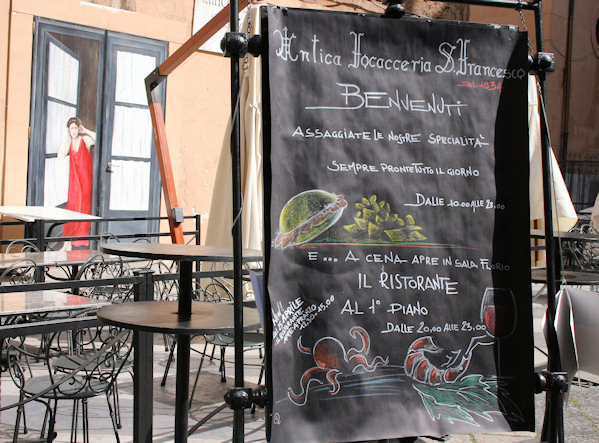 Antica Focacceria S. Francesco
DAL 1834
BENVENUTI
ASSAGGIATE LE NOSTRE SPECIALITÀ
SEMPRE PRONTE TUTTO IL GIORNO
DALLE 10.00 ALLE 23.00
E ... A CENA APRE IN SALA FLORIO
IL RISTORANTE
AL 1° PIANO
DALLE 20,00 ALLE 23.00